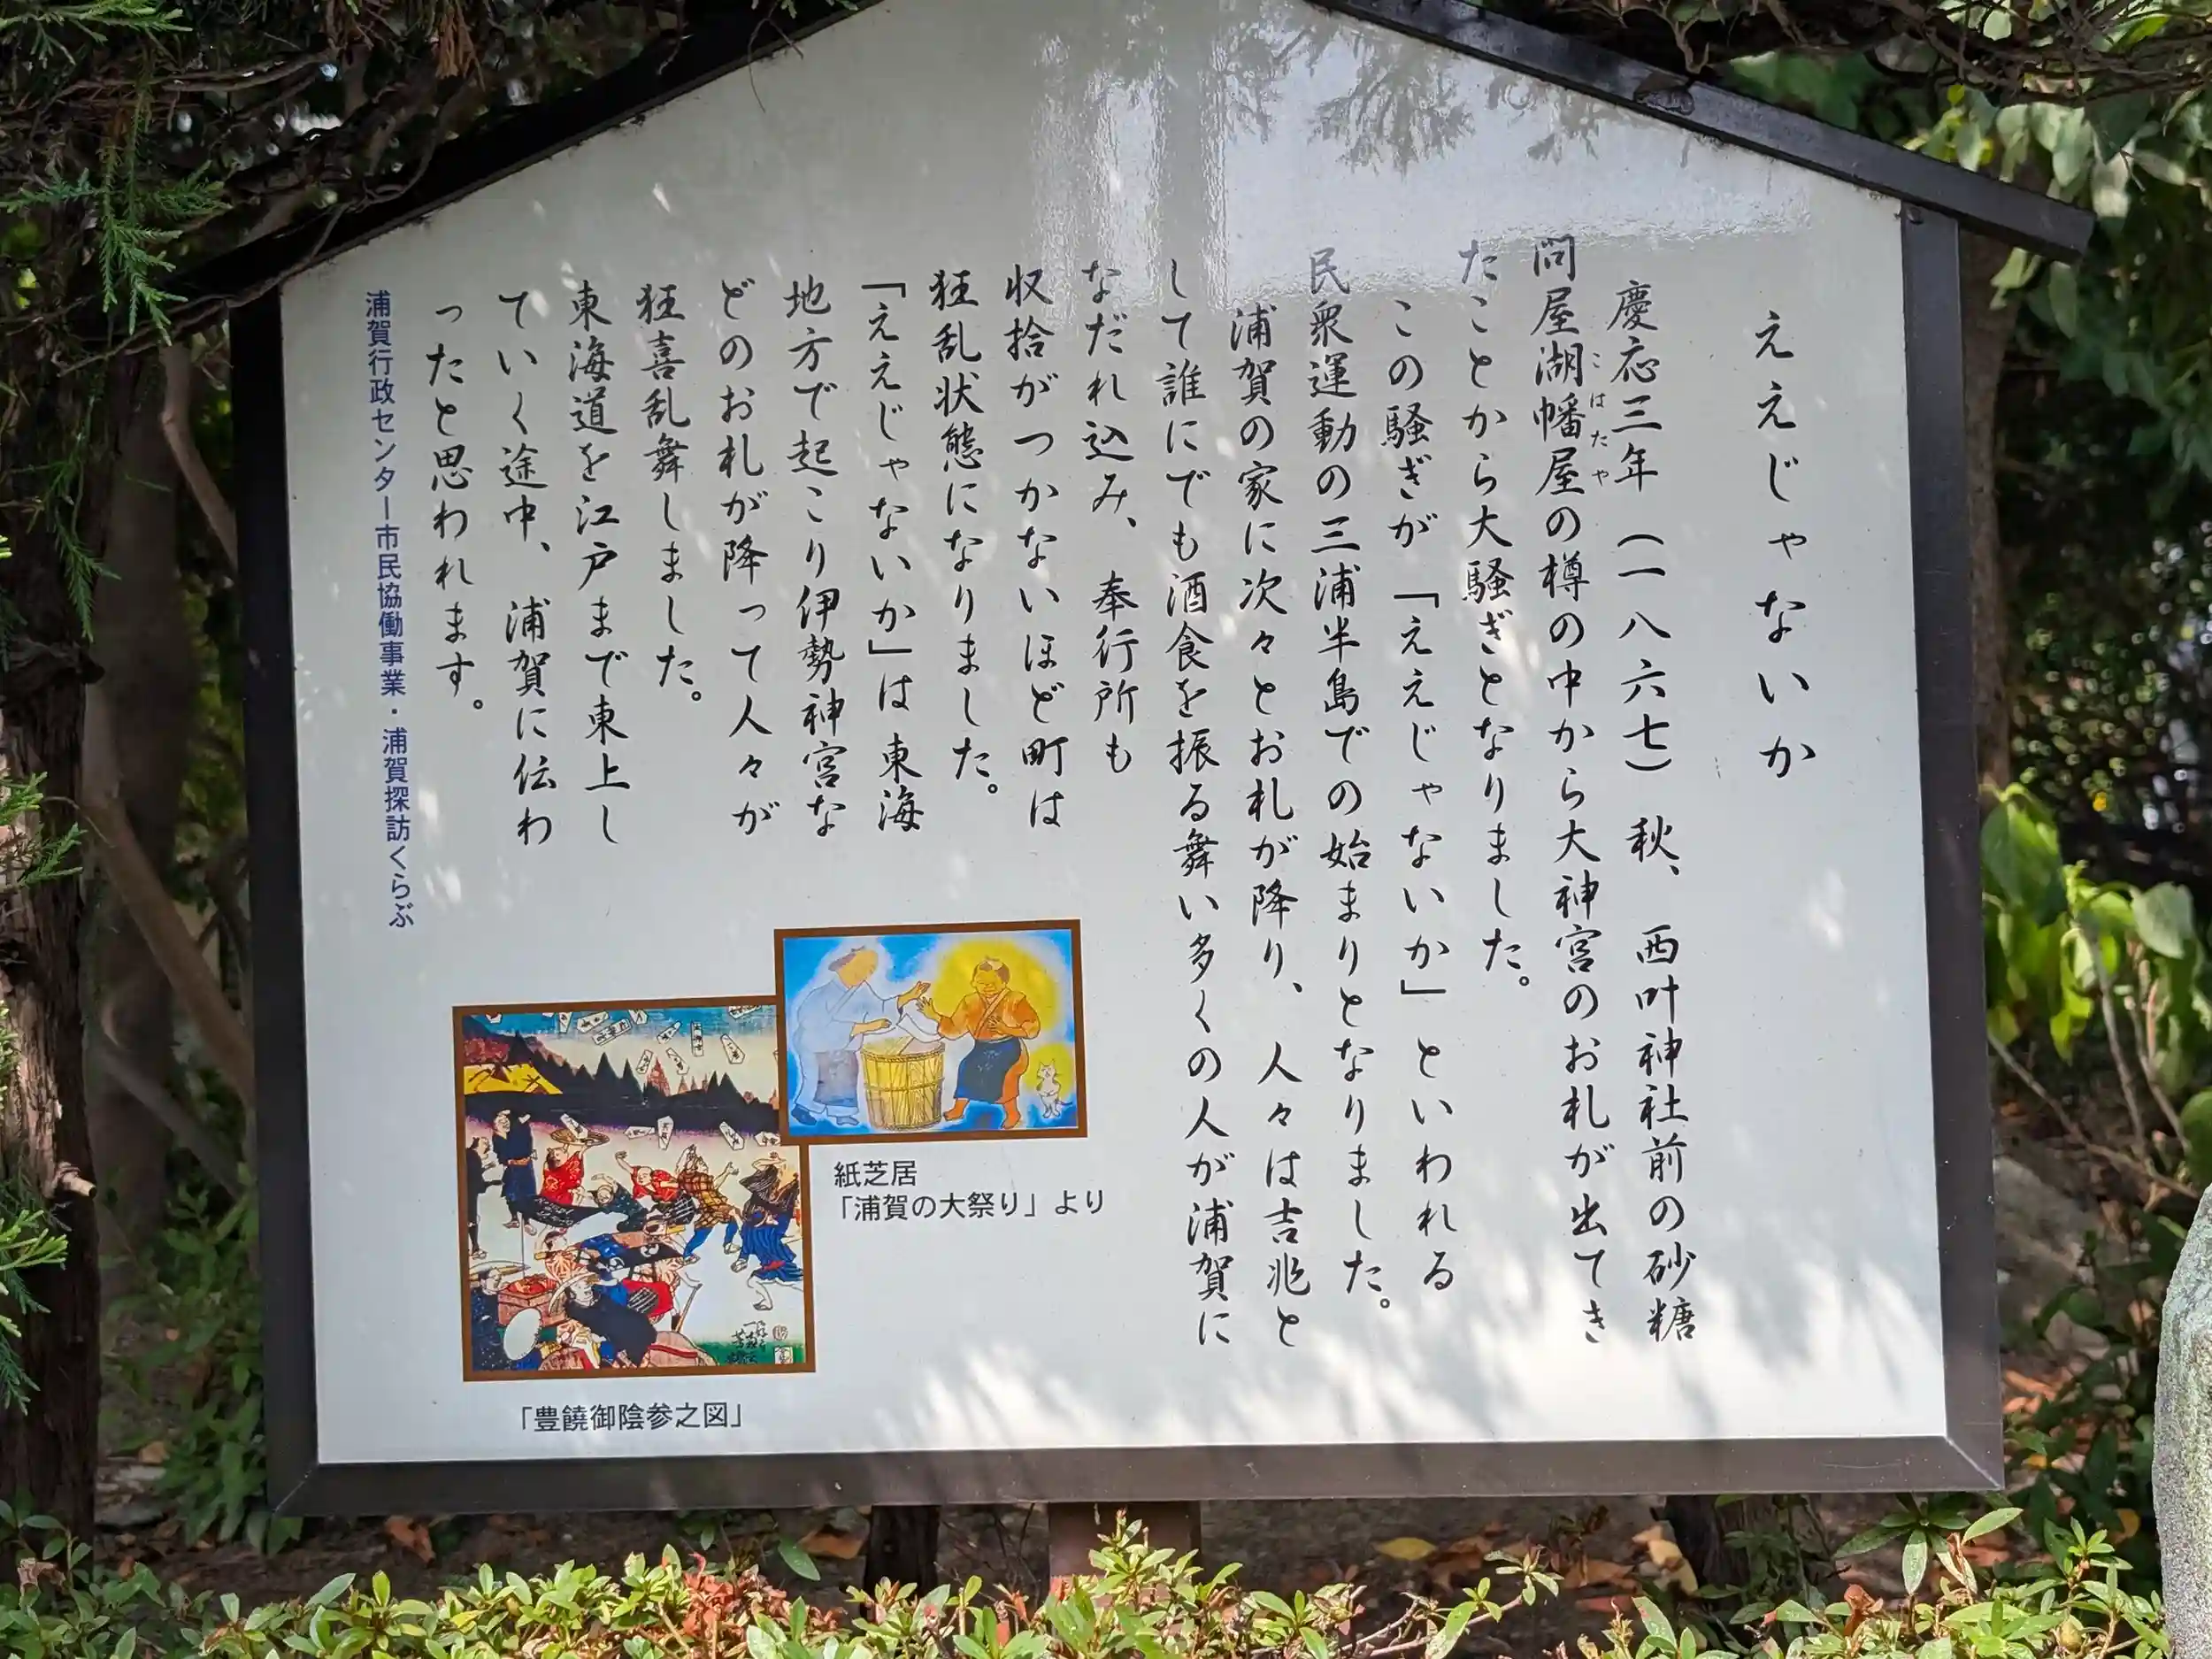 ええじゃないか
慶応三年（一八六七）秋、西叶神社前の砂糖
問屋湖幡屋の樽の中から大神宮のお札が出てき
こはたや
たことから大騒ぎとなりました。
この騒ぎが「ええじゃないか」といわれる
民衆運動の三浦半島での始まりとなりました。
浦賀の家に次々とお札が降り、人々は吉兆と
して誰にでも酒食を振る舞い多くの人が浦賀に
なだれ込み、奉行所も
収拾がつかないほど町は
狂乱状態になりました。
「ええじゃないか」は東海
地方で起こり伊勢神宮な
どのお札が降って人々が
狂喜乱舞しました。
東海道を江戸まで東上し
ていく途中、浦賀に伝わ
ったと思われます。
浦賀行政センター市民協働事業・浦賀探訪くらぶ
紙芝居
「浦賀の大祭り」より
「豊饒御陰参之図」